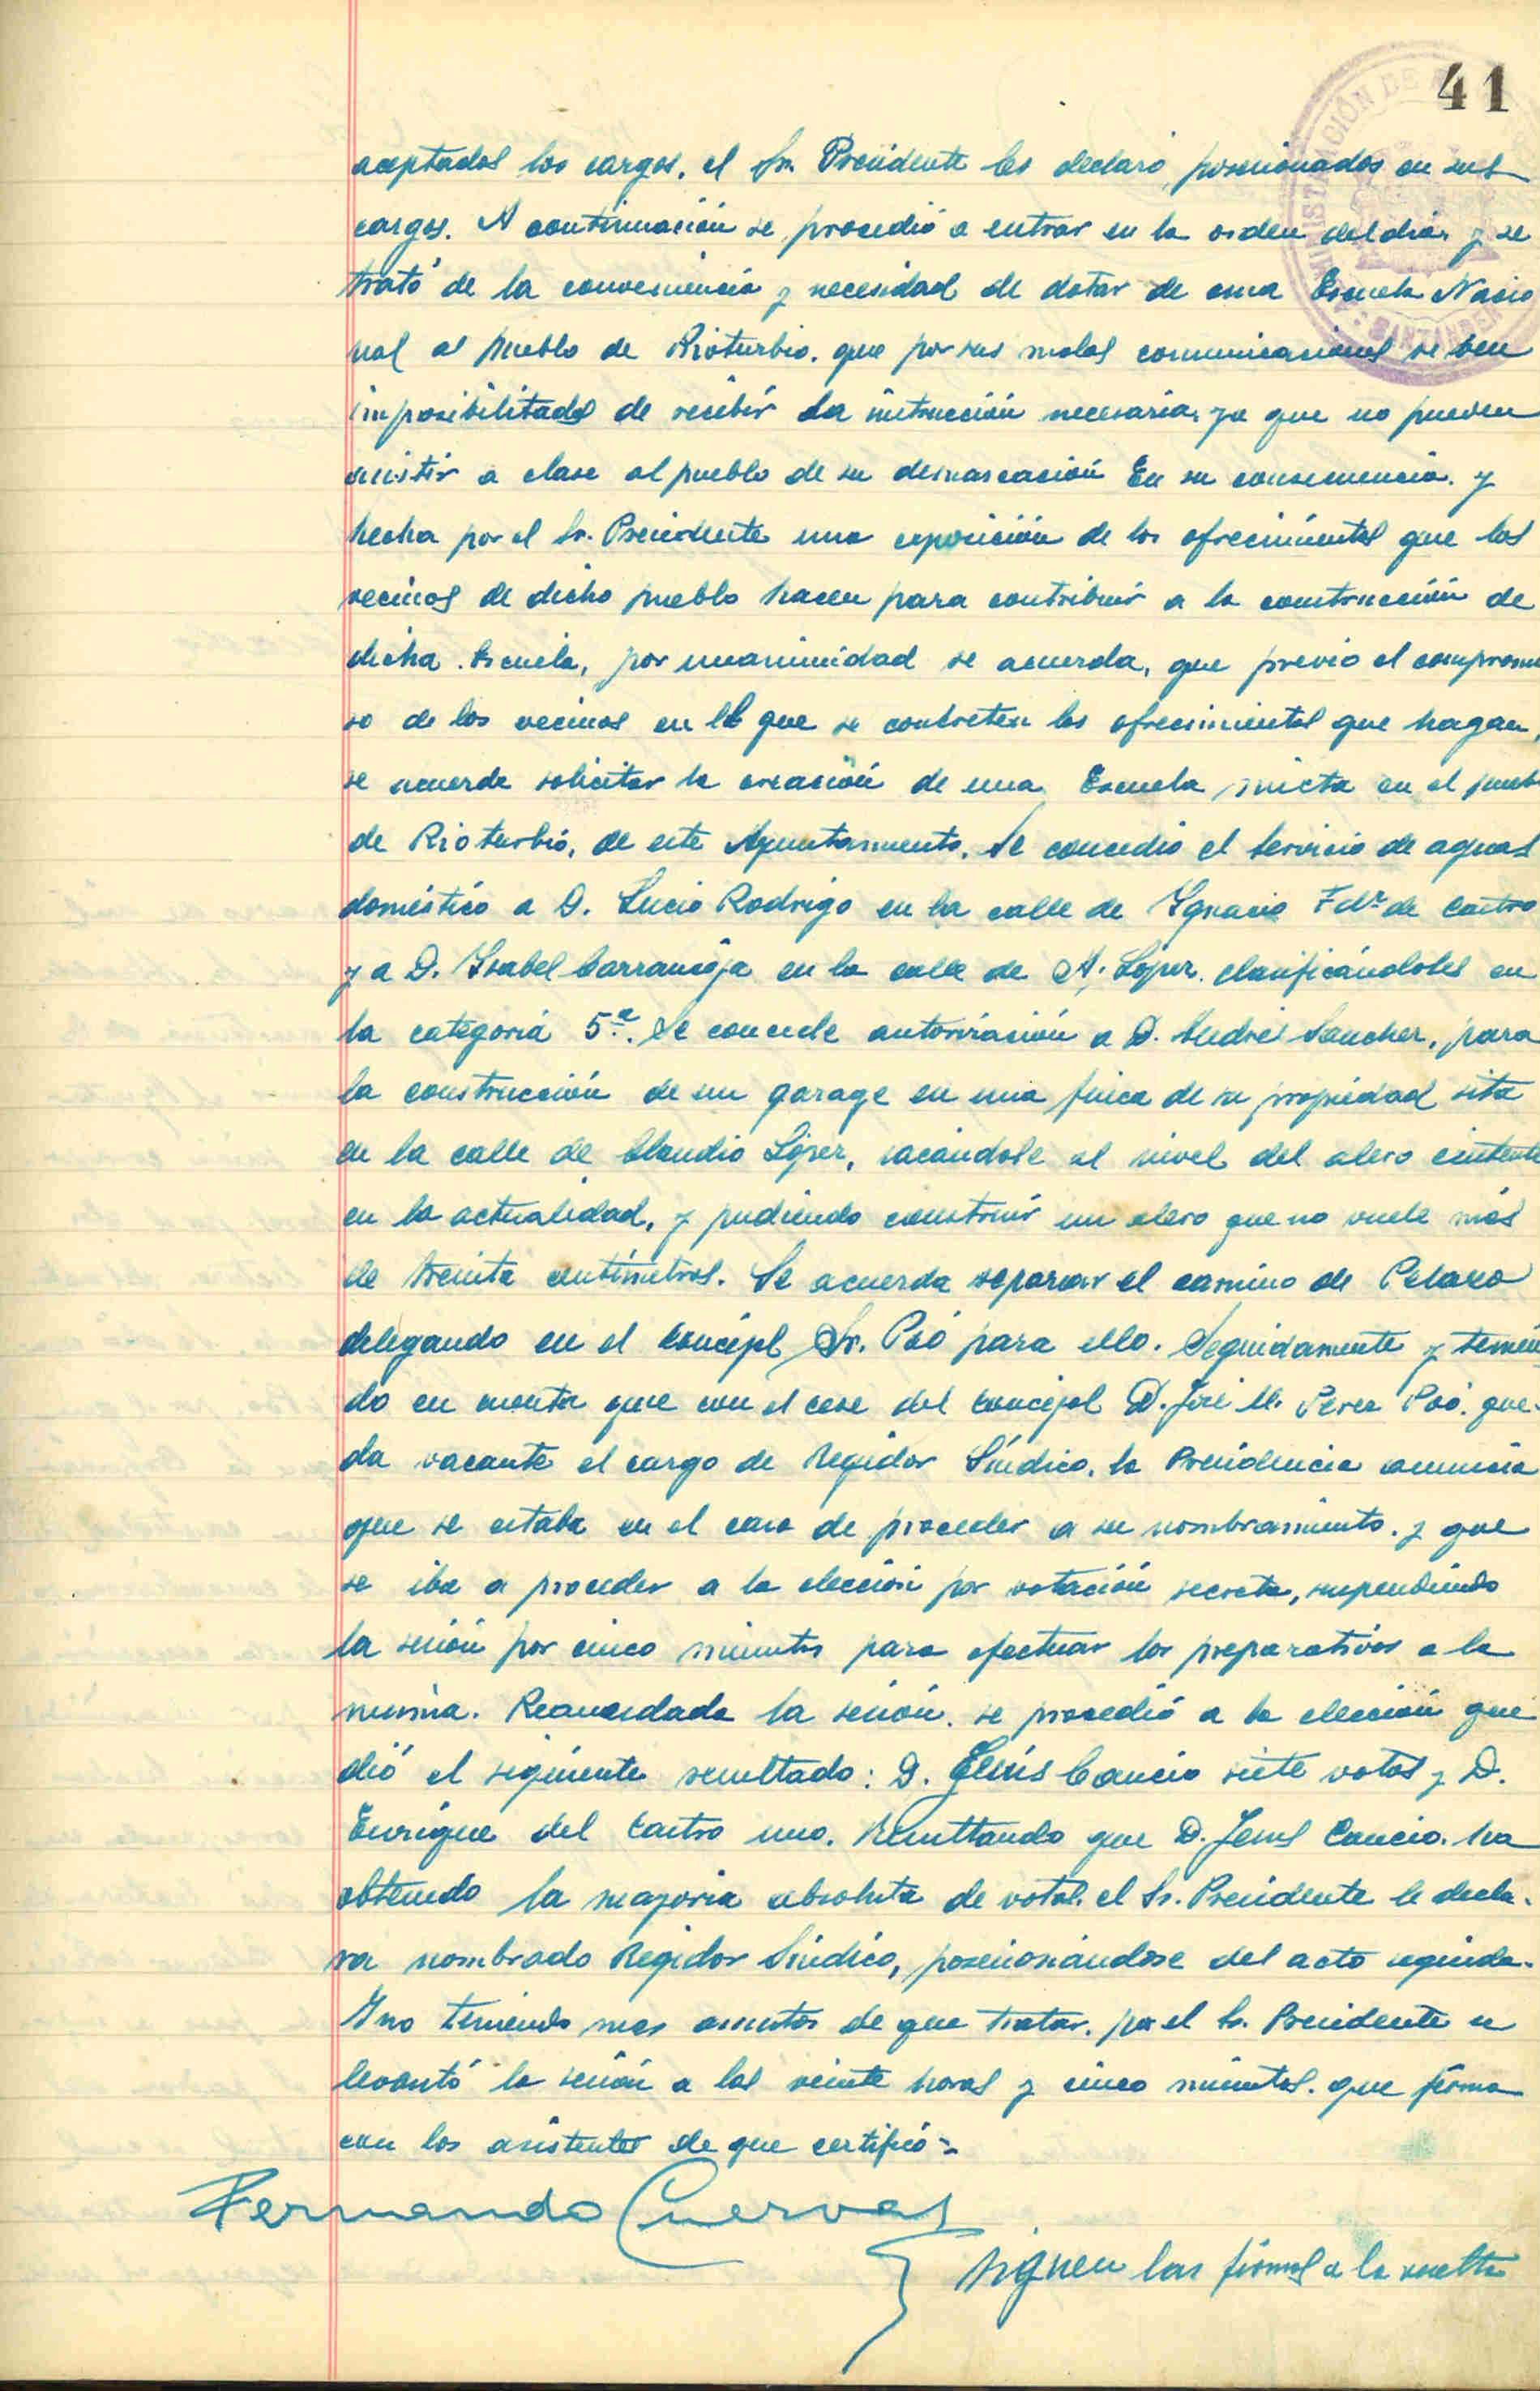 41
ADMINISTRACIÓN DE
SANTANDER
aceptados los cargos, el Sr. Presidente les declaró, posesionados en sus
cargos. A continuación se procedió a entrar en la orden del día, y se
trató de la conveniencia y necesidad de dotar de una Escuela Nacio
nal al pueblo de Rioturbio, que por sus malas comunicaciones se ben
imposibilitados de recibir la instrucción necesaria, ya que no pueden
asistir a clase al pueblo de su demarcación En su consecuencia, y
hecha por el Sr. Presidente una exposición de los ofrecimientos que los
vecinos de dicho pueblo hacen para contribuir a la construcción de
dicha Escuela, por unanimidad se acuerda, que previo el compromi
so de los vecinos en el que se concreten los ofrecimientos que hagan,
se acuerda solicitar la creación de una Escuela mixta en el pueblo
de Rioturbio, de este Ayuntamiento. Se concedió el servicio de aguas
doméstico a D. Lucio Rodrigo en la calle de Ygnacio Fdz de Castro
y a D. Ysabel Carranceja en la calle de A. López, clasificándoles en
la categoría 5ª. Se concede autorización a D. Andrés Sanchez, para
la construcción de un garage en una finca de su propiedad sita
en la calle de Claudio López, sacándole al nivel del alero existente
en la actualidad, y pudiendo construir un alero que no vuele más
de treinta centímetros. Se acuerda reparar el camino de
delegando en el concejal Sr. Poó para ello. Seguidamente y tenien
do en cuenta que con el cese del concejal D. José M. Perez Poó, que-
da vacante el cargo de Regidor Síndico, la Presidencia anuncia
que se estaba en el caso de proceder a su nombramiento, y que
se iba a proceder a la elección por votación secreta, suspendiendo
la sesión por cinco minutos para efectuar los preparativos a la
misma. Reanudada la sesión, se procedió a la elección que
dió el siguiente resultado: D. Jesús Cancio siete votos y D.
Enrique del Castro uno. Resultando que D. Jesus Cancio, ha
obtenido la mayoria absoluta de votos, el Sr. Presidente le decla-
ra nombrado Regidor Síndico, posesionándose del acto seguido.
Y no teniendo mas asuntos de que tratar, por el Sr. Presidente se
levantó la sesión a las veinte horas y cinco minutos, que firma
con los asistentes de que certifico=
Fernando Cuervas
siguen las firmas a la vuelta